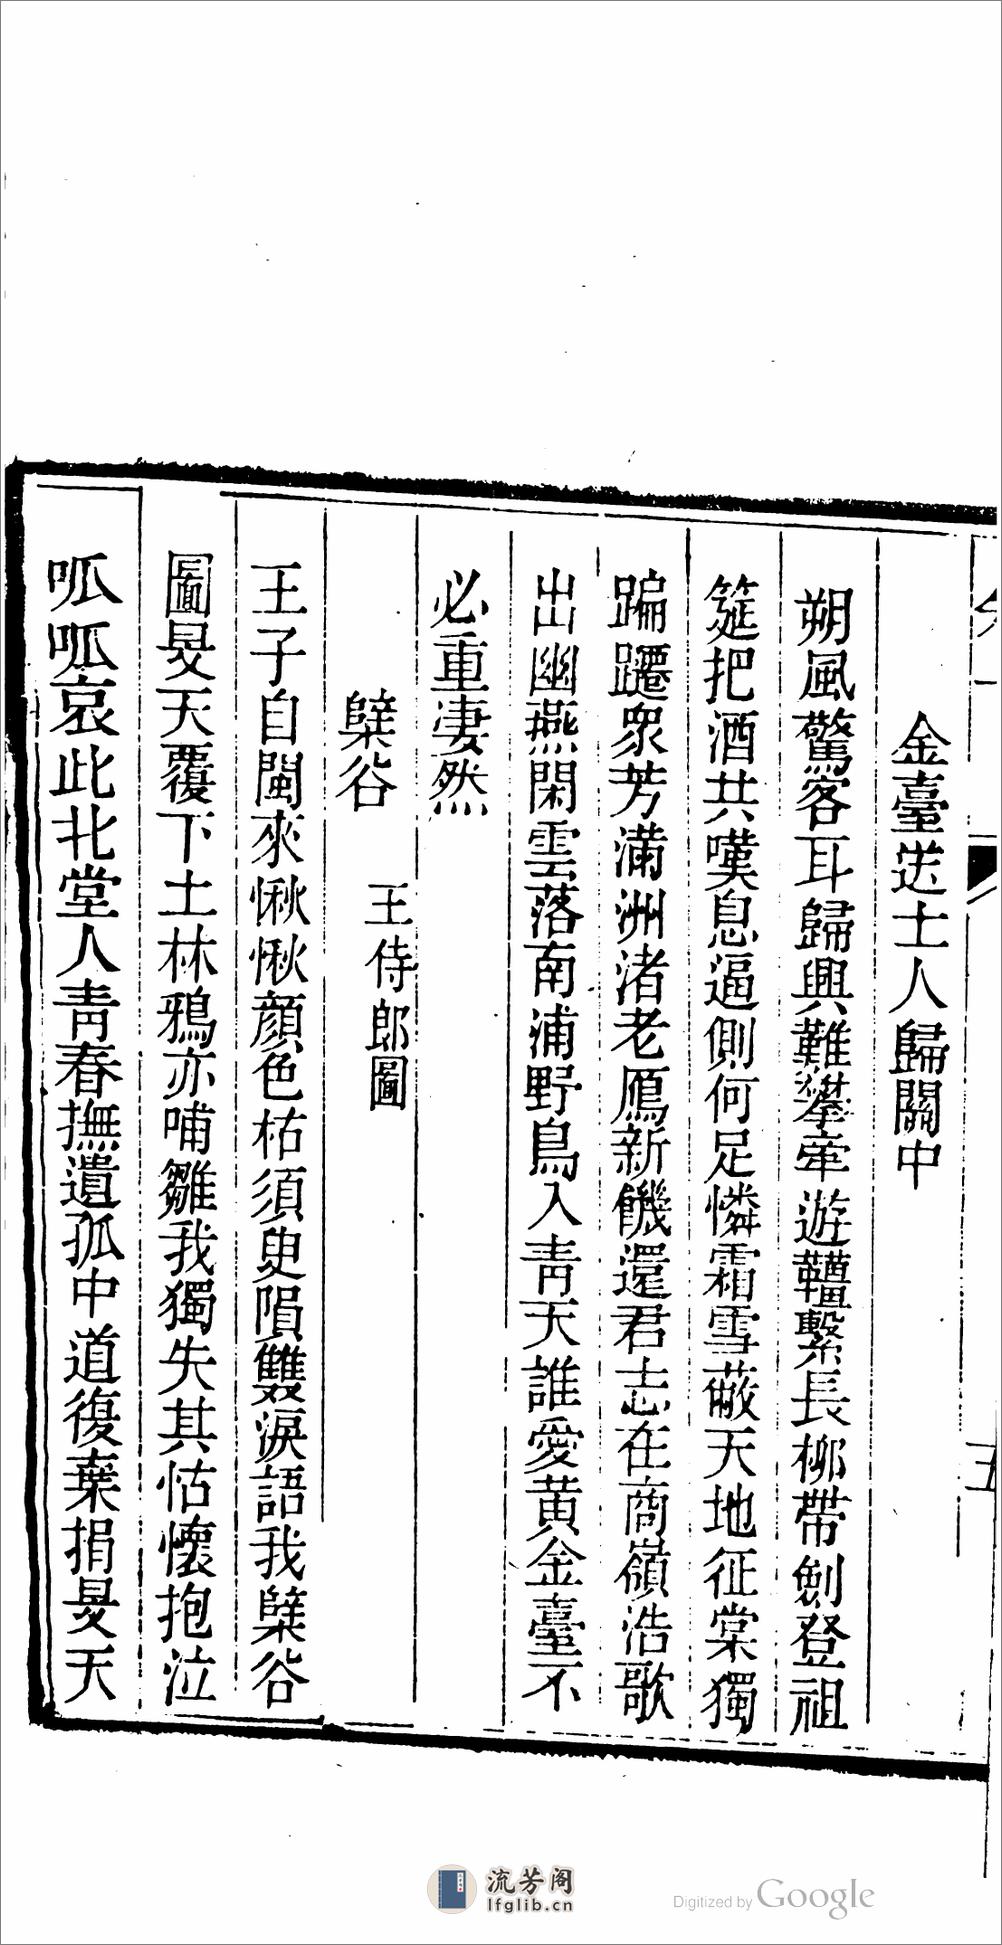 金臺送士人歸關中
朔風驚客耳歸興難攀牽遊韁繫長柳帶劍登祖
筵把酒共嘆息逼側何足憐霜雪蔽天地征棠獨
蹁躚衆芳滿洲渚老鴈新饑還君志在商嶺浩歌
出幽燕閑雲落南浦野鳥入青天誰愛黄金臺不
必重凄然
檗谷　王侍郎圖
王子自閩來愀愀顔色枯須臾隕雙淚語我檗谷
圖旻天覆下土林鴉亦哺雛我獨失其怙懷抱泣
呱呱哀此北堂人青春撫遺孤中道復棄捐旻天
五
流芳阁
lfglib.cn
Digitized by Google